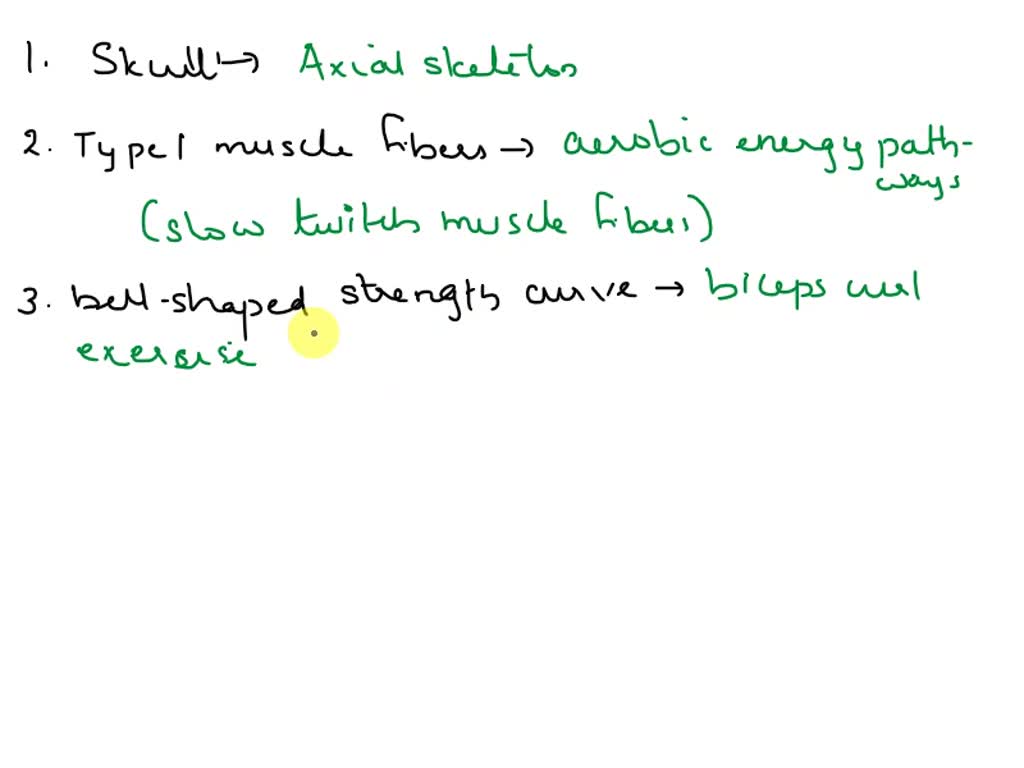 1. Skull → Axial skeleton
2. Type 1 muscle fibers → aerobic energy path-
ways
(slow twitch muscle fibers)
3. bell-shaped strength curve → biceps curl
exercise